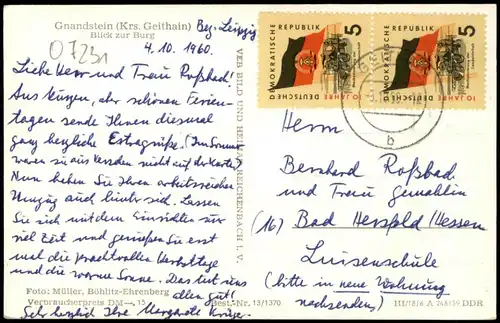 Gnandstein (Krs. Geithain) Bez. Leipzig
Blick zur Burg
07231
4.10.1960.
Liebe Herr und Frau Roßbad!
Aus kurzen, aber schönen Ferien-
tagen sende Ihnen diesmal
ganz herzliche Extragrüße. (Im Sommer
waren sie aus Versehen nicht auf der Karte)
Nun haben Sie Ihren arbeitsreichen
Umzug auch hinter sich. Lassen
Sie sich mit dem Einrichten nur
viel Zeit und genießen Sie erst
mal die prachtvollen Herbsttage
und die warme Sonne. Das tut uns
allen gut!
Sehr herzlich Ihre Margarete Krüger.
Foto: Müller, Böhlitz-Ehrenberg
Verbraucherpreis DM —,15
Best.-Nr. 13/1370
VEB BILD UND HEIMAT REICHENBACH I. V.
DEUTSCHE DEMOKRATISCHE REPUBLIK
10 JAHRE
5
DEUTSCHE DEMOKRATISCHE REPUBLIK
10 JAHRE
5
b
Herrn
Bernhard Roßbad
und Frau Gemahlin
(16) Bad Hersfeld/Hessen
Luisenschule
(bitte in neue Wohnung
nachsenden)
III/18/6 A 748/59 DDR